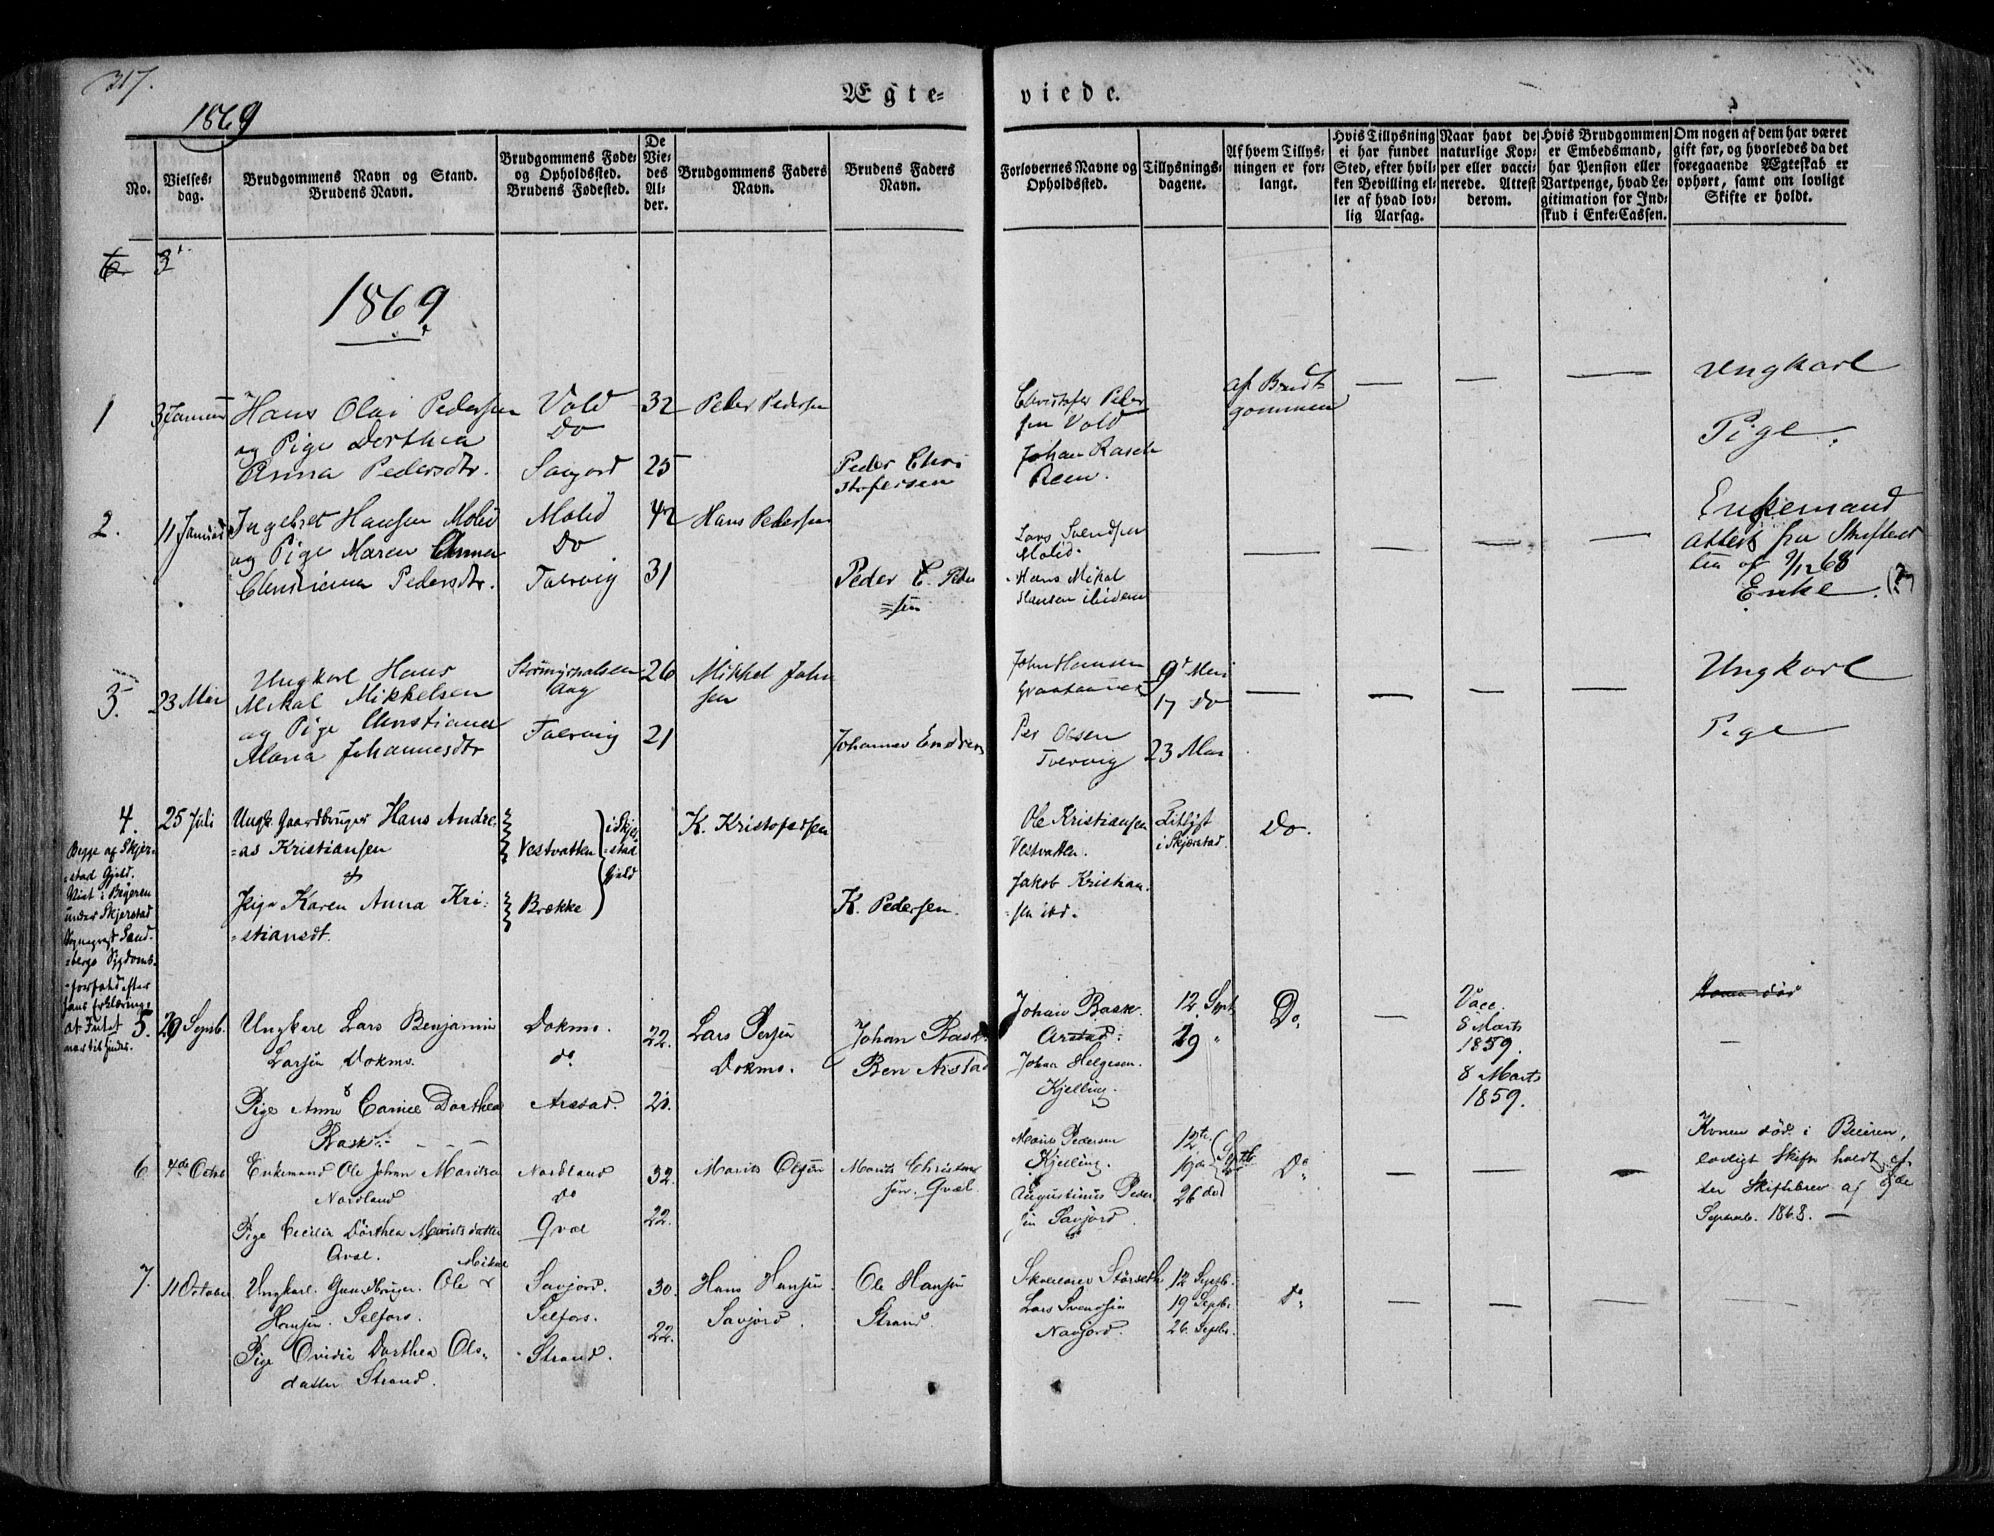 317.
1869
Ægte-
viede.
No.
Vielses-
dag.
Brudgommens Navn og Stand.
Brudens Navn.
Brudgommens Føde-
og Opholdssted.
Brudens Fødested.
De
Vie-
des
Al-
der.
Brudgommens Faders
Navn.
Brudens Faders
Navn.
Forlovernes Navne og
Opholdssted.
Tillysnings-
dagene.
Af hvem Tillys-
ningen er for-
langt.
Hvis Tillysning
ei har fundet
Sted, efter hvil-
ken Bevilling el-
ler af hvad lov-
lig Aarsag.
Naar havt de
naturlige Kop-
per eller vacci-
nerede. Attest
derom.
Hvis Brudgommen
er Embedsmand,
har Pension eller
Vartpenge, hvad Le-
gitimation for Ind-
skud i Enke-Cassen.
Om nogen af dem har været
gift før, og hvorledes da det
foregaaende Ægteskab er
ophørt, samt om lovligt
Skifte er holdt.
1869
1
3 Januar
Hans Olai Pedersen
og Pige Dorthea
Anna Pedersdtr.
Vold
Do
Saagord
32
25
Peder Pedersen
Peder Chri
stofersen
Christofer Peder
sen Vold
Johan Rasch
Reen.
af Brudt
gommen
— — —
Ungkarl
Pige.
2.
11 Januar
Ingebret Hansen Molid
og Pige Maren Anna
Christiana Pedersdtr.
Molid
Do
Tvervig
42
31
Hans Pedersen
Peder C. Peder
=sen
Lars Svendsen
Molid.
Hans Mikal
Hansen ibidem
— — — —
Enkemand
attest fra Skifteret
ten af 9/12 68
Enke. (?)
3.
23 Mai
Ungkarl Hans
Mikal Mikkelsen
og Pige Christiana
Maria Johannesdtr
Aag
Tvervig
26
21
Mikkel John
sen
Johannes
John Hansen
Per Olsen
Tvervig
9d Mai
17 Do
23 Mai
— — — —
Ungkarl
Pige
4.
25 Juli
Ungk. Gaardbruger Hans Andre-
=as Kristiansen
+
Pige Karen Anna Kri-
=stiansdt.
Vestvatten
Brække
i Skjer-
=stad
Gjeld
K. Kristofersen
K. Pedersen.
Ole Kristiansen
Vestvatten.
Jakob Kristian-
sen ibd.
Tillyst
i Skjerstad
Do.
Begge af Skjer-
=stad Gjeld.
Viet i Beyeren
under Skjerstad
Sognepræst Sand-
=bergs Sygdoms-
-forfald efter
hans Erklæring,
at Intet
var til Hinder.
5.
20 Septb.
Ungkarl Lars Benjamin
Larsen Dokmo.
&
Pige Anne Cornice Dorthea
Rask
Dokmo.
do
Arstad.
22.
20.
Lars Persen
Dokmo.
Johan Rask
Ben Arstad
Johan Rask
Arstad.
Johan Helgesen
Kjelling.
12. Sept
19 "
Do
—
Vacc.
8 Marts
1859.
8 Marts
1859.
—
6
4de Octb
Enkemand Ole Johan Moritsen
Nordland
Pige Cecilia Dorthea Moritsdatter
Qval.
Nordland
do
Qval
32.
22.
Morits Olsen
Morits Christen
sen. Qval.
Pedersen
Kjelling.
Augustinus Peder
sen Savjord.
12te
19de
26de
Septb
Do
— — —
Konen død i Beieren,
lovligt Skifte holdt ef-
ter Skiftebrev af
Septemb. 1868. —
7.
11 October
Ungkarl. Gaardbruger. Ole Mikal
Hansen. Selfors.
Pige Ovidia Dorthea Ols-
datter Strand.
Savjord.
Selfors.
Strand.
30.
22.
Hans Hansen
Savjord.
Ole Hansen
Strand.
Skolelærer Storseth
Lars Svendsen
Navjord.
12 Septb.
19 Septb.
26. Septbr.
Do
— — — —